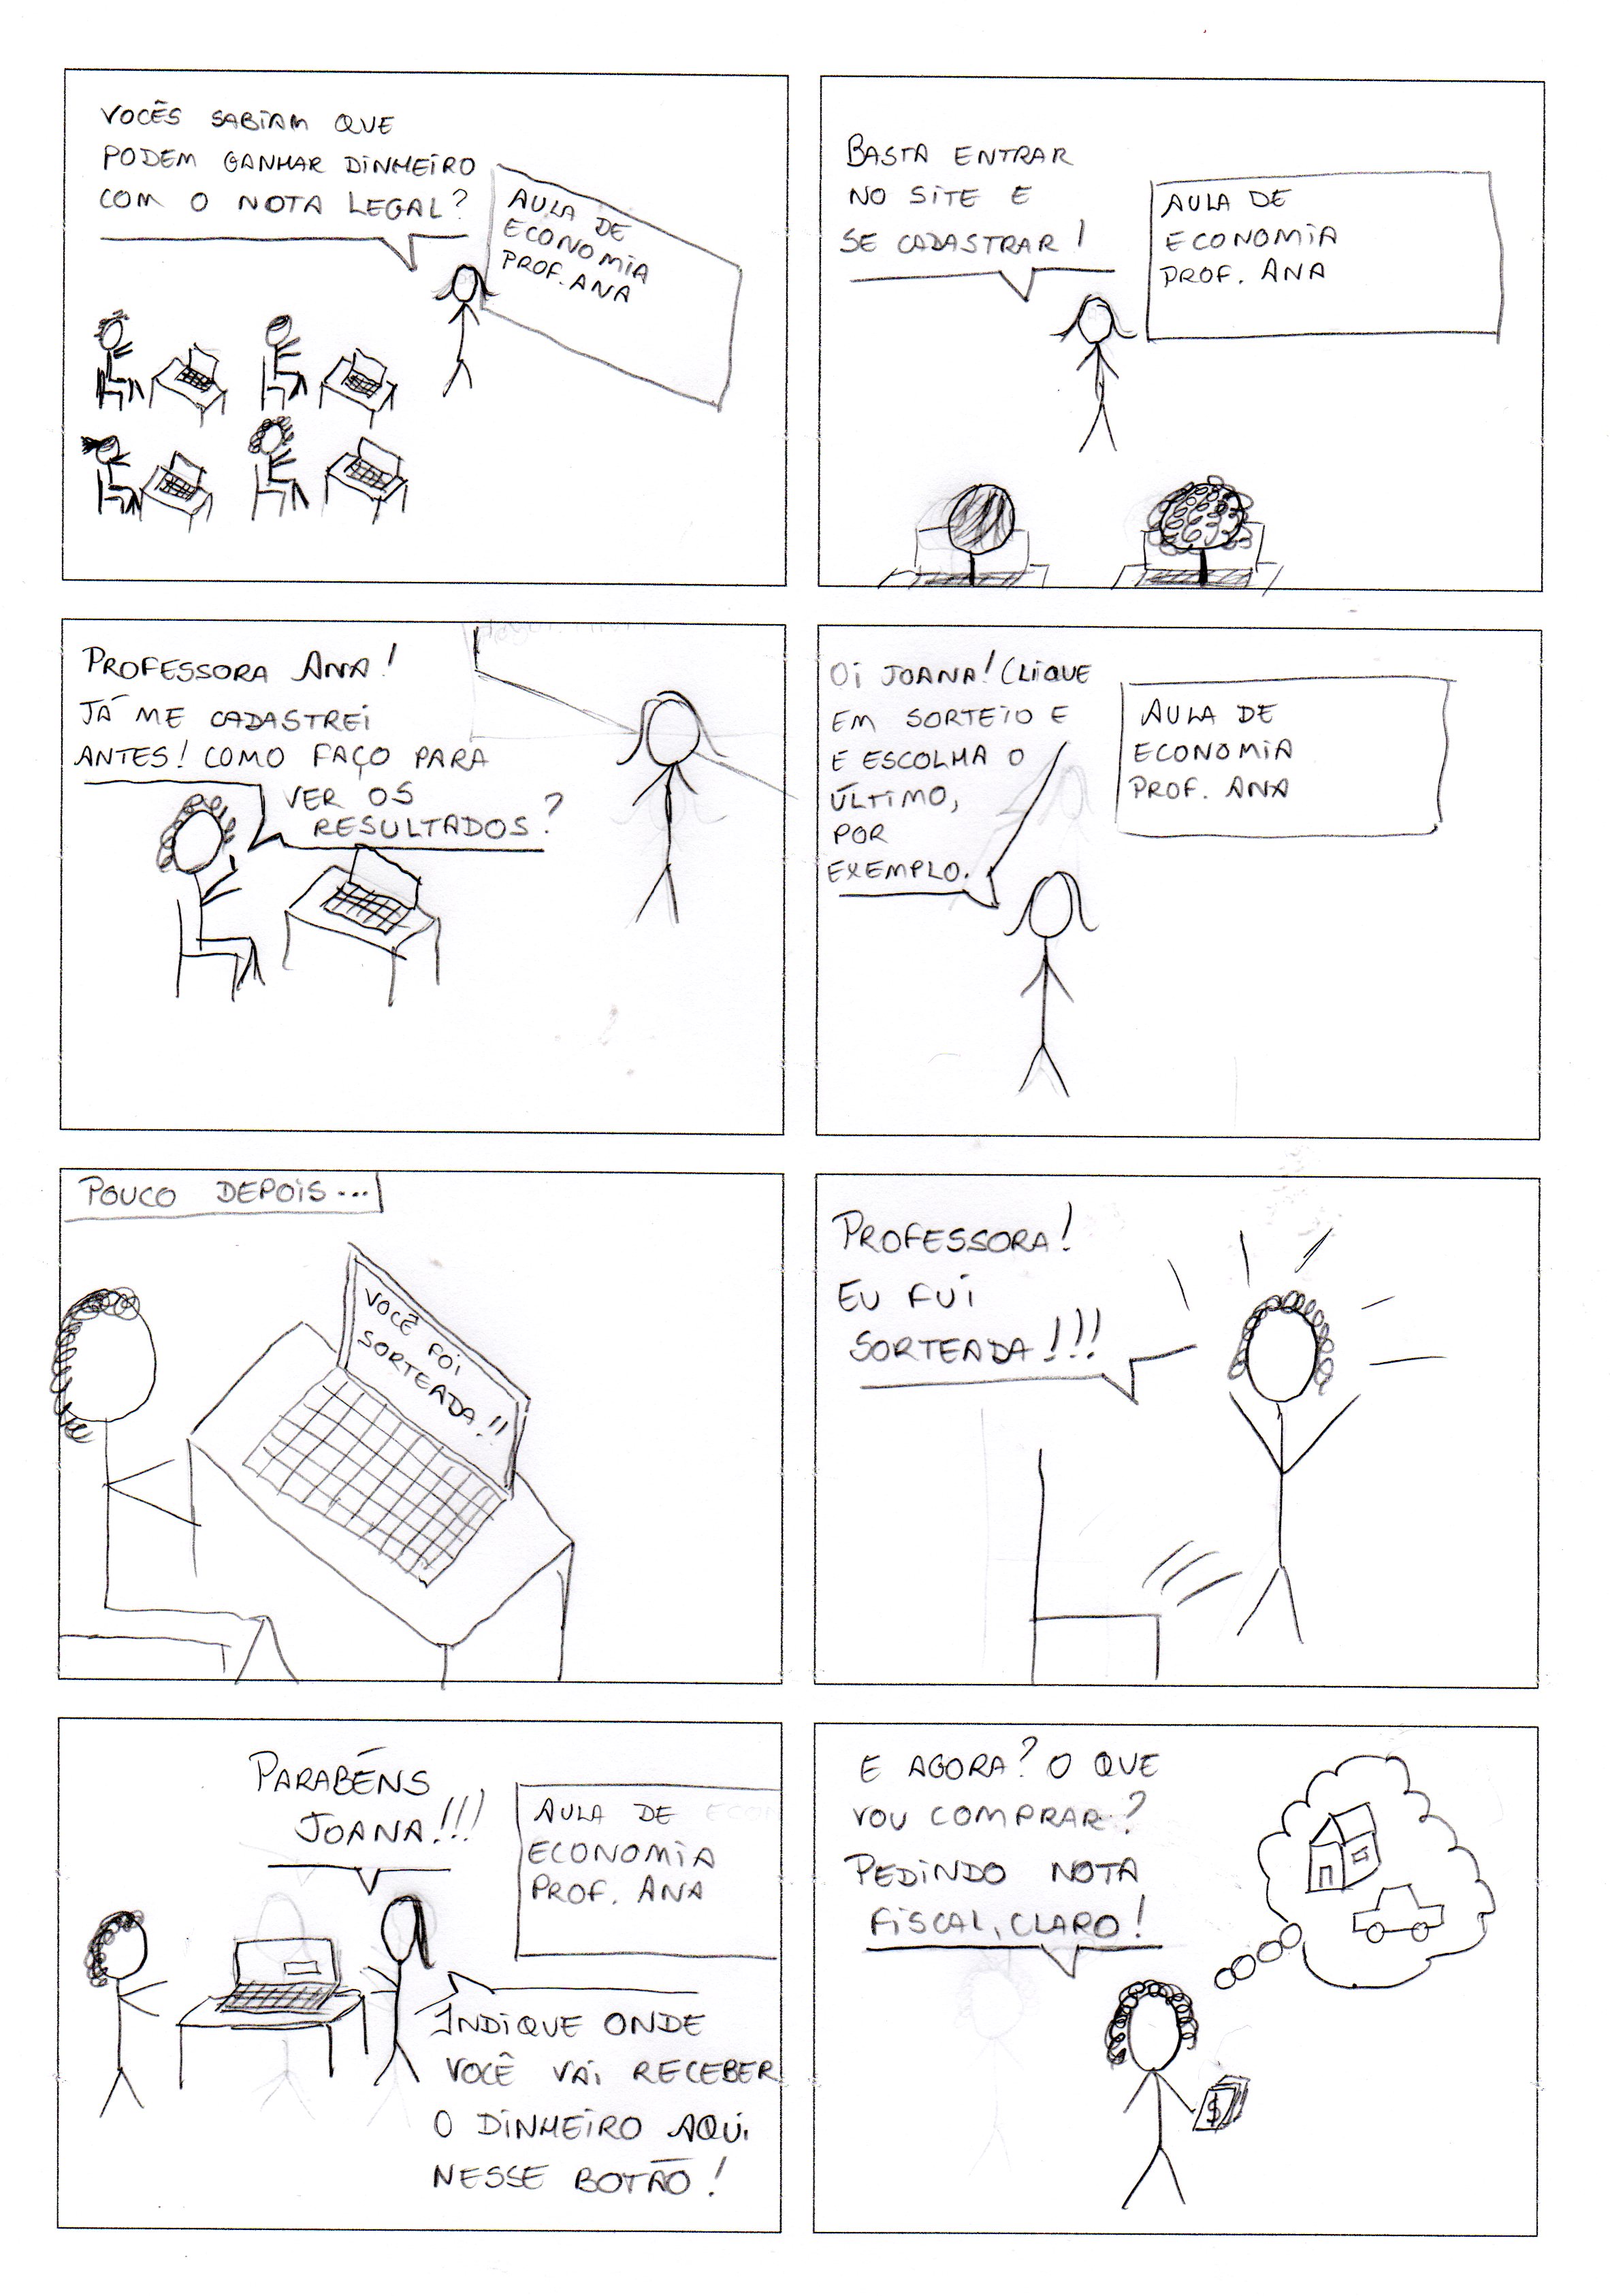 VOCÊS SABIAM QUE
PODEM GANHAR DINHEIRO
COM O NOTA LEGAL?
AULA DE
ECONOMIA
PROF. ANA
BASTA ENTRAR
NO SITE E
SE CADASTRAR!
AULA DE
ECONOMIA
PROF. ANA
PROFESSORA ANA!
JÁ ME CADASTREI
ANTES! COMO FAÇO PARA
VER OS
RESULTADOS?
OI JOANA! CLIQUE
EM SORTEIO E
E ESCOLHA O
ÚLTIMO,
POR
EXEMPLO.
AULA DE
ECONOMIA
PROF. ANA
POUCO DEPOIS...
VOCÊ FOI
SORTEADA!!
PROFESSORA!
EU FUI
SORTEADA!!!
PARABÉNS
JOANA!!!
AULA DE
ECONOMIA
PROF. ANA
INDIQUE ONDE
VOCÊ VAI RECEBER
O DINHEIRO AQUI
NESSE BOTÃO!
E AGORA? O QUE
VOU COMPRAR?
PEDINDO NOTA
FISCAL, CLARO!
$